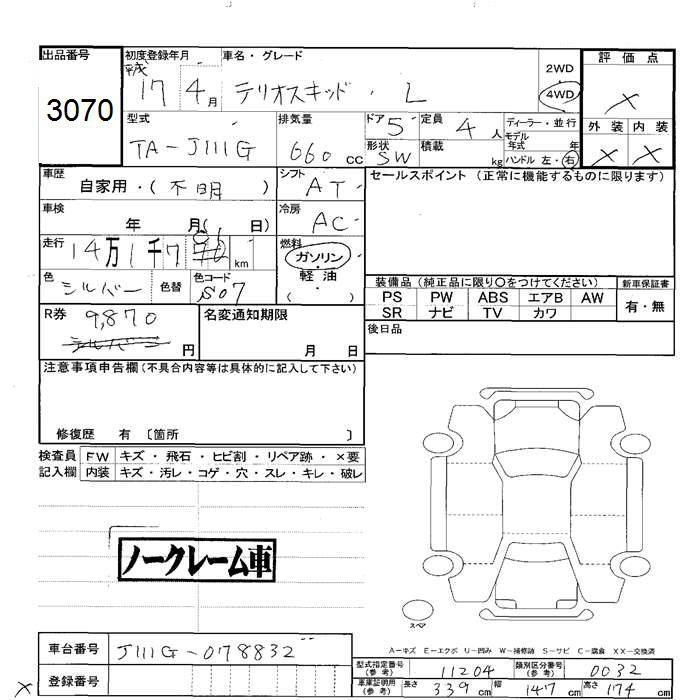 出品番号
3070
初度登録年月
平成
17 4月
車名・グレード
テリオスキッド・L
2WD
4WD
評価点
×
型式
TA-J111G
排気量
660 cc
ドア 5
定員 4 人
形状 SW
積載 kg
ディーラー・並行
モデル年式 年
ハンドル 左・右
外装 内装
× ×
車歴
自家用・(不明)
シフト
AT
セールスポイント (正常に機能するものに限ります)
車検
年 月( 日)
冷房
AC
走行
14万1千7 km
燃料
ガソリン
軽油
( )
色
シルバー
色替
色コード
S07
装備品 (純正品に限り〇をつけてください)
新車保証書
PS PW ABS エアB AW
SR ナビ TV カワ
有・無
R券
9,870
円
名変通知期限
月 日
後日品
注意事項申告欄(不具合内容等は具体的に記入して下さい)
修復歴 有 〔箇所 〕
検査員 FW キズ・飛石・ヒビ割・リペア跡・×要
記入欄 内装 キズ・汚レ・コゲ・穴・スレ・キレ・破レ
ノークレーム車
スペア
A-キズ E-エクボ U-凹み W-補修跡 S-サビ C-腐食 XX-交換済
車台番号
J111G-078832
型式指定番号 (参考)
11204
類別区分番号 (参考)
0032
登録番号
車庫証明用 (参考)
長さ 339 cm
幅 147 cm
高さ 174 cm
×